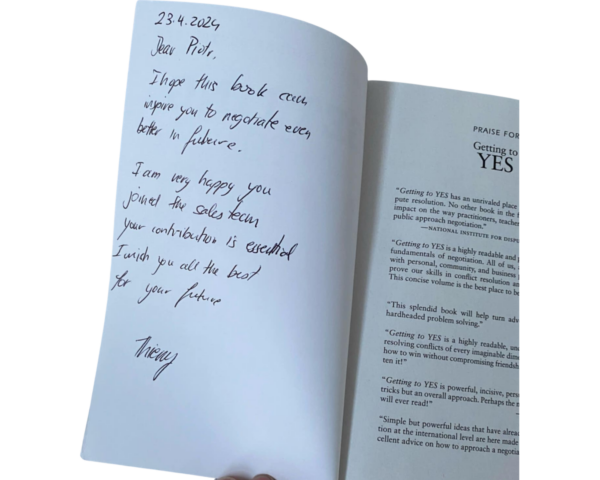 23.4.2024
Dear Piotr,
I hope this book can
inspire you to negotiate even
better in future.
I am very happy you
joined the sales team
your contribution is essential
I wish you all the best
for your future
Thierry
PRAISE FOR
Getting to
YES
"Getting to YES has an unrivaled place
pute resolution. No other book in the f
impact on the way practitioners, teache
public approach negotiation."
—NATIONAL INSTITUTE FOR DISPU
"Getting to YES is a highly readable and p
fundamentals of negotiation. All of us,
with personal, community, and business
prove our skills in conflict resolution an
This concise volume is the best place to be
"This splendid book will help turn adv
hardheaded problem solving."
"Getting to YES is a highly readable, un
resolving conflicts of every imaginable dime
how to win without compromising friendsh
ten it!"
"Getting to YES is powerful, incisive, pers
tricks but an overall approach. Perhaps the m
will ever read!"
"Simple but powerful ideas that have alread
tion at the international level are here made
cellent advice on how to approach a negotia